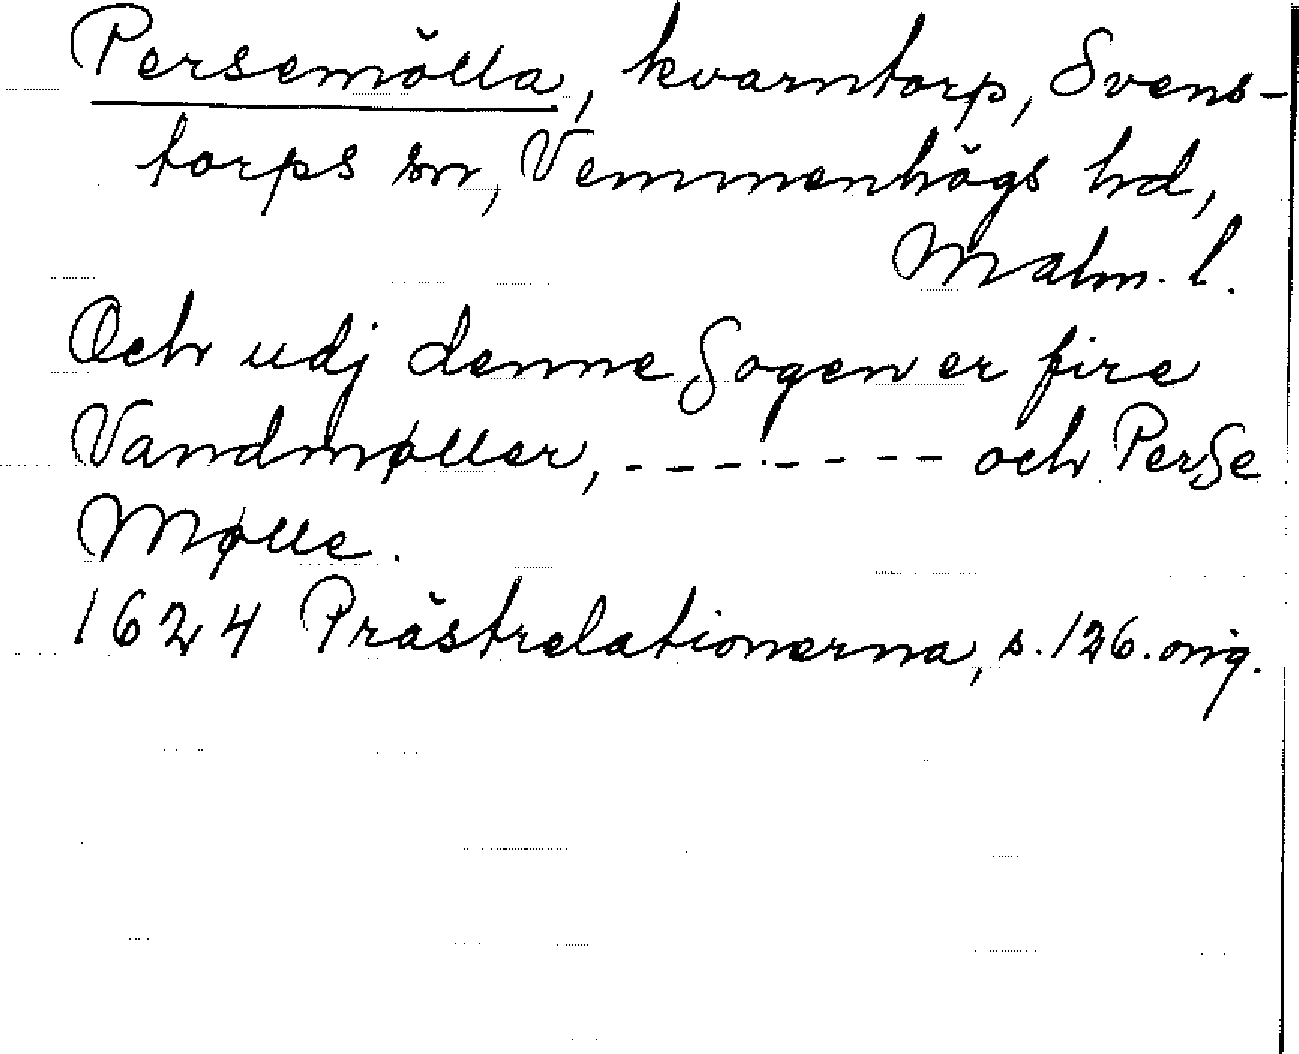 Persemölla, kvarntorp, Svens-
torps sn, Vemmenhögs hd,
Malm. l.
Och udj denne Sogen er fire
Vandmøller, - - - - - - - - och Perse
Mølle.
1624 Prästrelationerna, s. 126. orig.